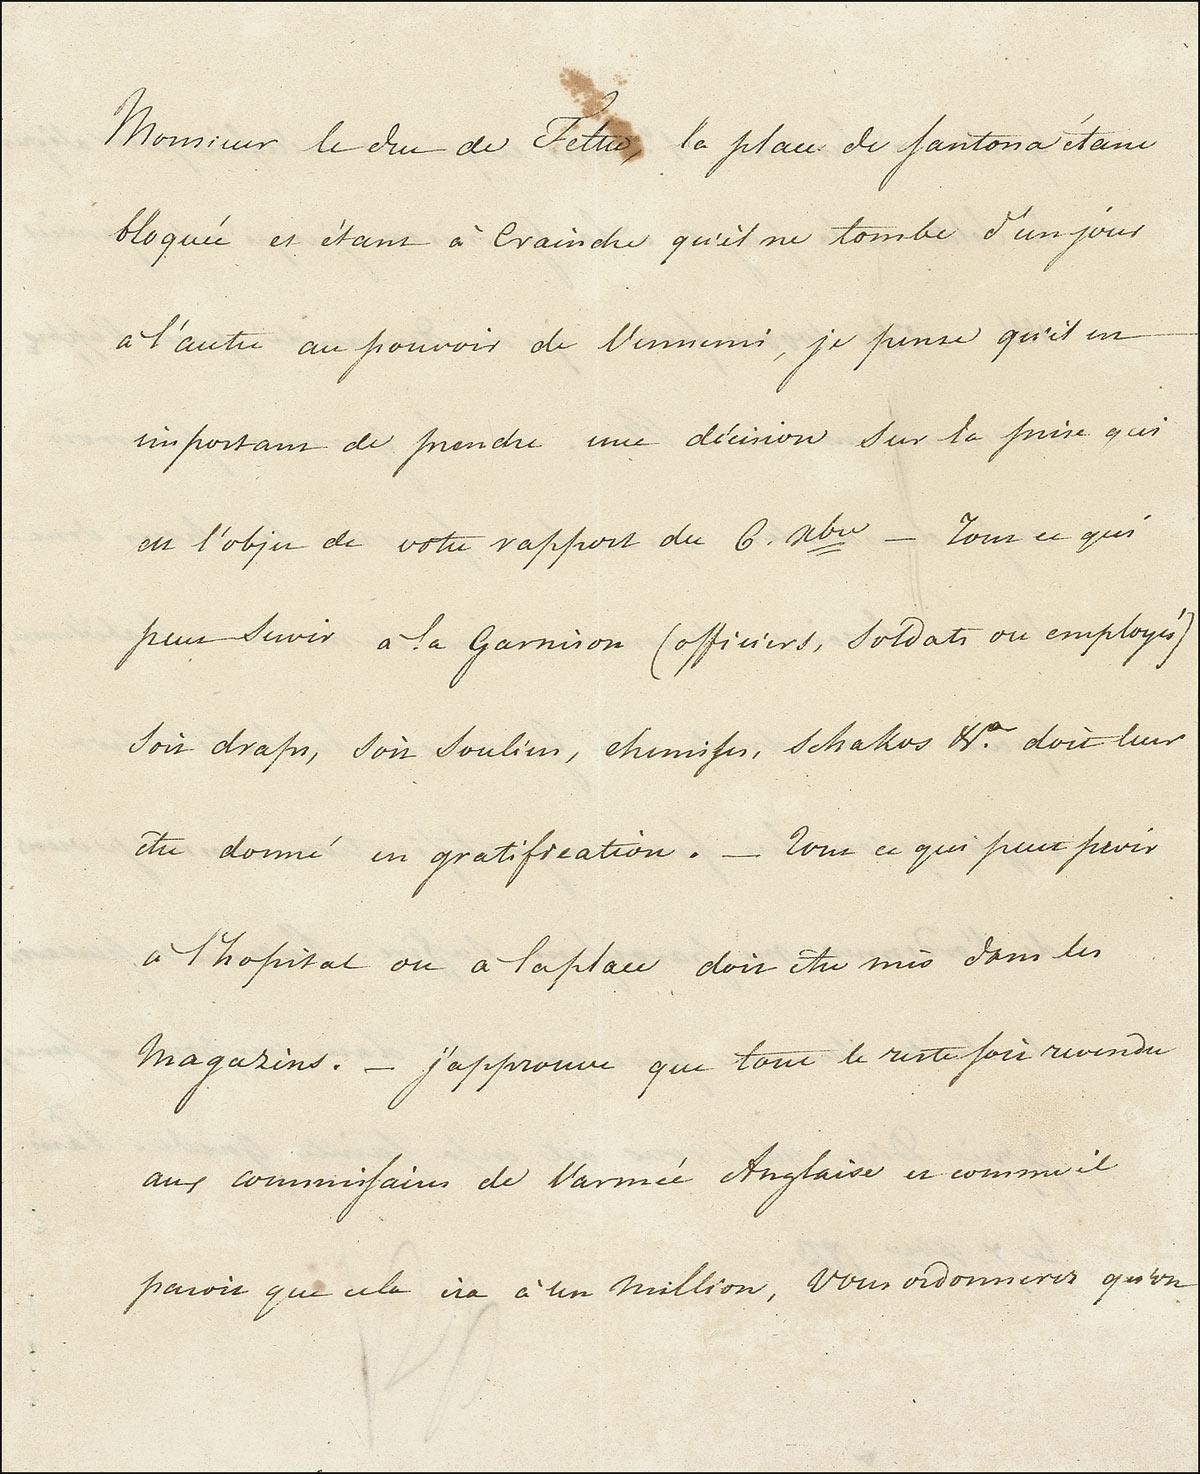 Monsieur le duc de Feltre, la place de Santona étant
bloquée et étant à Craindre qu'il ne tombe d'un jour
à l'autre au pouvoir de l'ennemi, je pense qu'il est
important de prendre une décision sur la prise qui
est l'objet de votre rapport du 6. Xbre — Tout ce qui
peut Servir a la Garnison (officiers, Soldats ou employés)
Soit draps, Soit Souliers, chemises, Schakos &a. doit leur
être donné en gratification. — Tout ce qui peut servir
à l'hopital ou a la place doit être mis dans les
Magazins. — j'approuve que tout le reste soit revendu
aux commissaires de l'armée Anglaise et comme il
paroit que cela ira à un Million, Vous ordonnerez qu'on